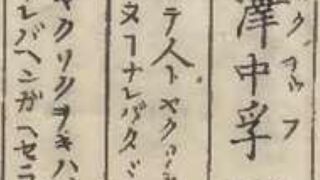 澤中孚
テ人トヤク
フナレバタ
ヤクソクヲキハ
レバヘンガヘセ